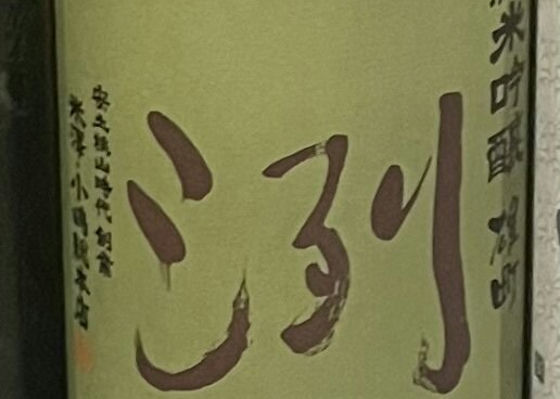 純米吟醸 雄町
洌
安土桃山時代 創業
米澤・小嶋総本店